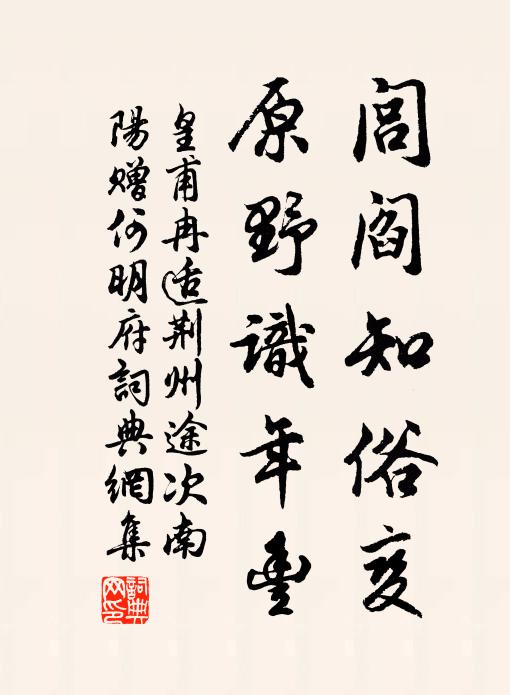 闾阎知俗变
原野識年豐
皇甫冉适荆州途次南
陽贈何明府詞典網集
詞典网印